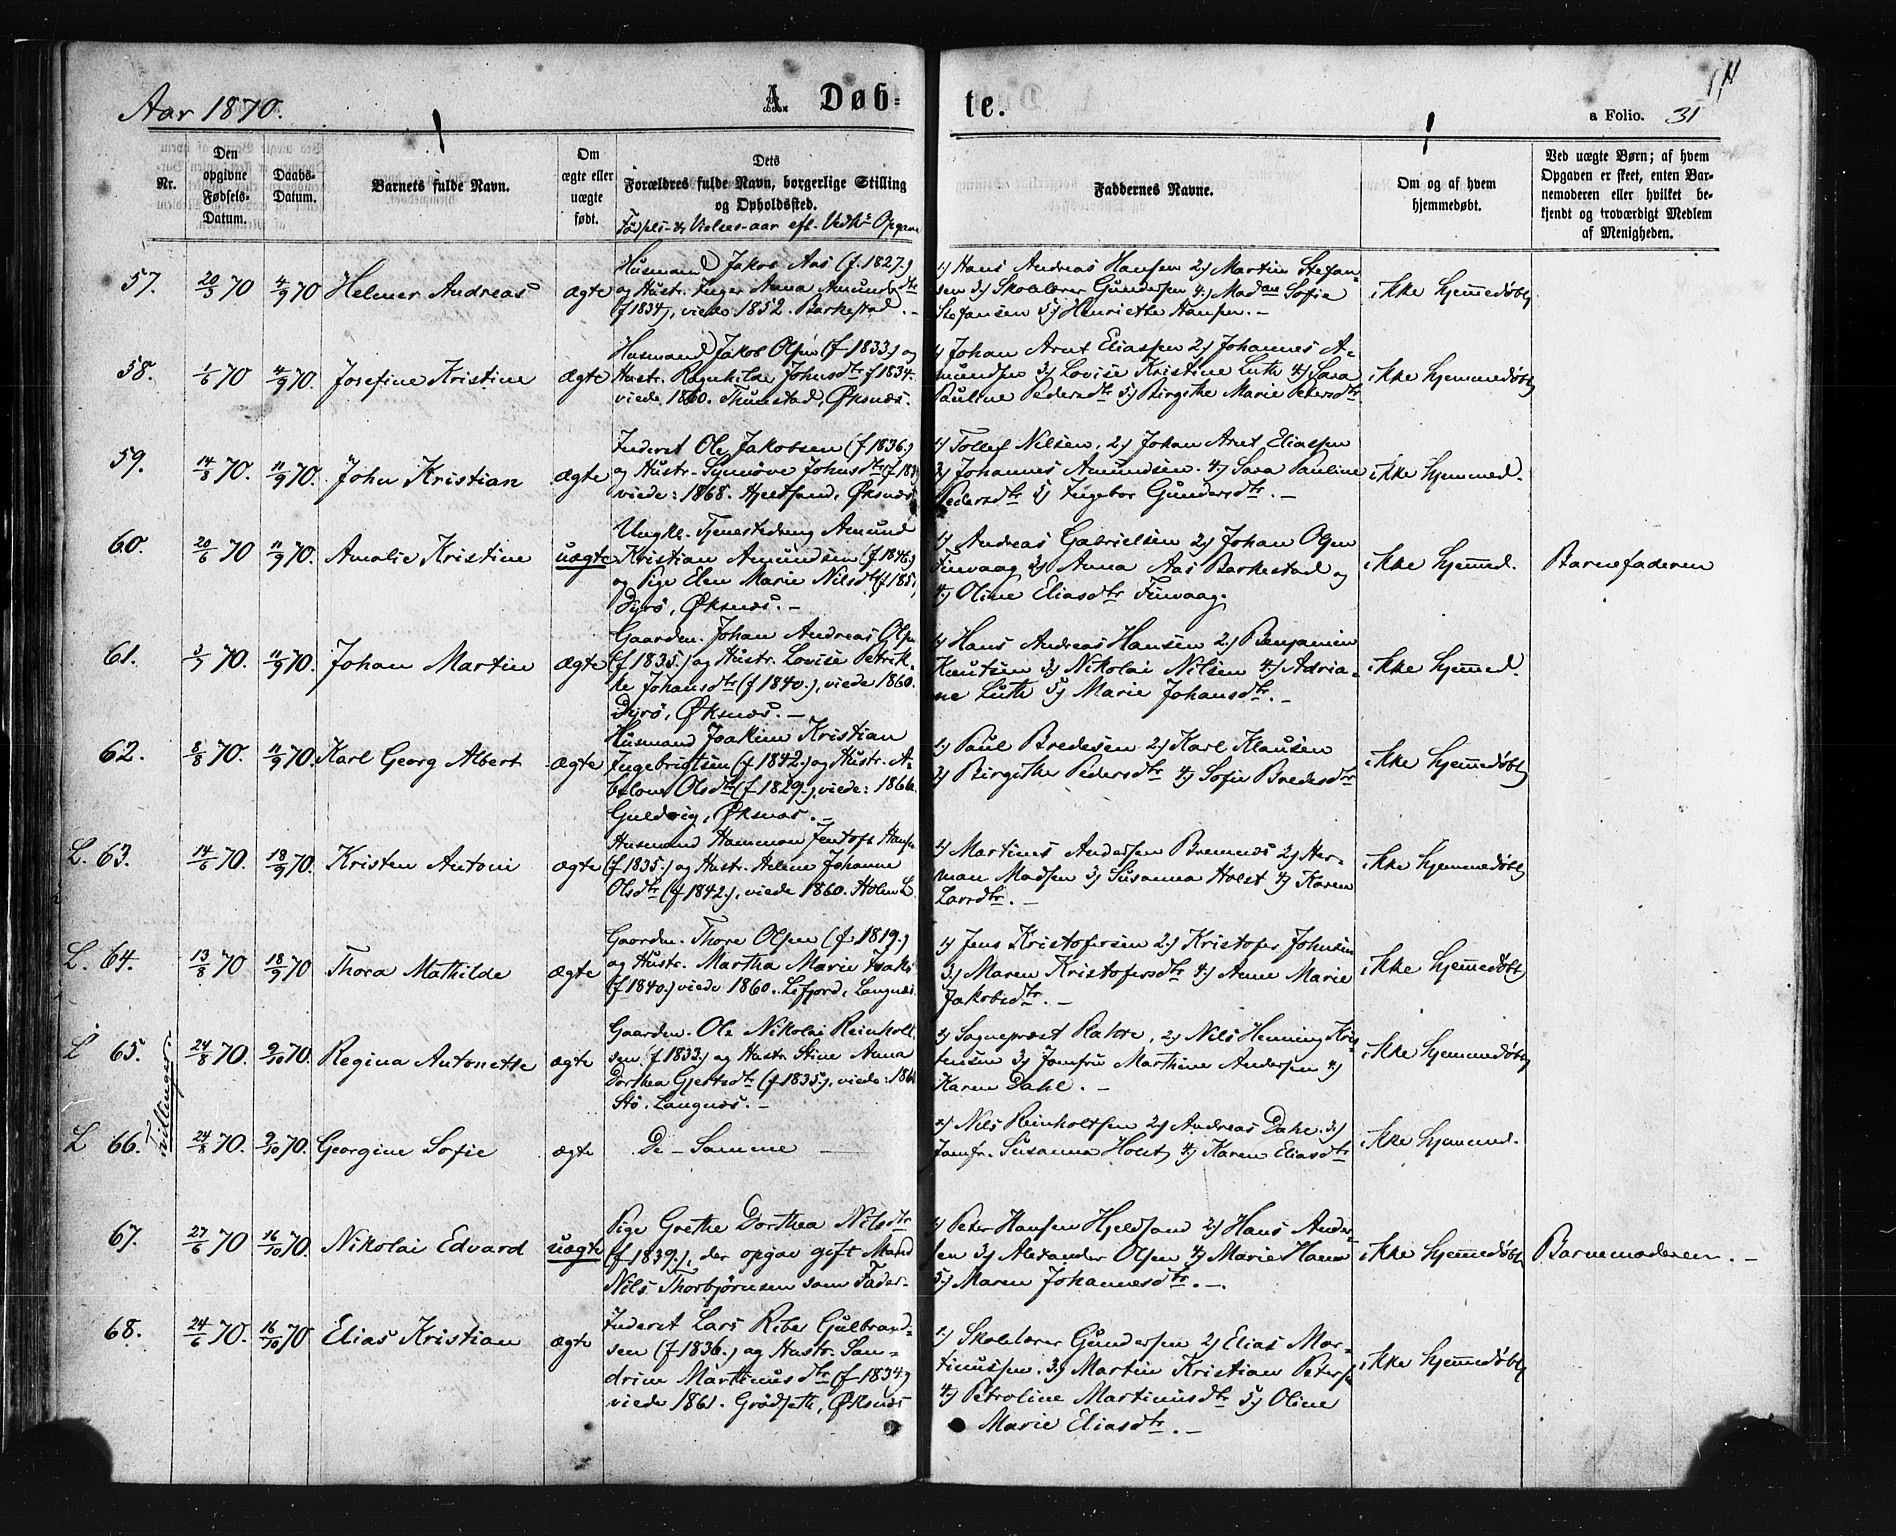 Aar 1870.
A. Døb-
te.
a Folio. 31
Nr.
Den opgivne Fødsels-Datum.
Daabs-Datum.
Barnets fulde Navn.
Om ægte eller uægte født.
Dets Forældres fulde Navn, borgerlige Stilling og Opholdssted.
Fødsels- & Vielses-aar eft. Vedk. Opgave
Faddernes Navne.
Om og af hvem hjemmedøbt.
Ved uægte Børn; af hvem Opgaven er skeet, enten Barnemoderen eller hvilket bekjendt og troværdigt Medlem af Menigheden.
57. 20/5 70 4/9 70 Helmer Andreas ægte
Husmand Jakob Aas (f. 1827.)
og Hustr. Inger Anna Amundsdtr
f 1834), viede 1852. Barkestad. -
1) Hans Andreas Hansen 2) Martin Stefan-
sen 3) Skolelærer Gundersen 4) Madam Sofie
Stefansen 5) Henriette Hansen. -
ikke hjemmedøbt.
58. 1/6 70 4/9 70. Josefine Kristine ægte
Husmand Jakob Olsen (f 1833.) og
Hustr. Ragnhilda Johnsdtr f 1834.
viede 1860. Thunstad, Øksnæs.
1) Johan Arnt Eliassen 2) Johannes A-
mundsen 3) Lovise Kristine Luth 4) Sara
Pauline Pedersdtr 5) Birgithe Marie Petersdtr
ikke hjemmedøbt
59. 14/8 70. 11/9 70. John Kristian ægte
Inderst Ole Jakobsen (f 1836.)
og Hustr. Synnøve Johnsdtr (f 183
viede: 1868. Hjeltsand, Øksnæs
1) Tollef Nilsen, 2) Johan Arnt Eliassen
3) Johannes Amundsen. 4) Sara Pauline
Pedersdtr 5) Ingebor Gundersdtr. -
ikke hjemmed.
60. 20/6 70 11/9 70. Amalie Kristine uægte
Ungk. Tjenestedreng Amund
Kristian Amundsen (f 1846.)
og Pige Elen Marie Nilsdtr (f 185
Dyrø, Øksnæs. -
1) Andreas Gabrielsen 2) Johan Olsen
Finvaag 3) Anna Aas Barkestad og
4) Oline Eliasdtr Finvaag.
ikke hjemmed.
Barnefaderen
61. 3/7 70. 11/9 70. Johan Martin ægte
Gaardm. Johan Andreas Olsen
(f 1835.) og Hustr. Lovise Petrik-
ke Johansdtr (f 1840.), viede 1860.
Dyrø, Øksnæs. -
1) Hans Andreas Hansen 2) Benjamin
Knutsen 3) Nikolai Nilsen 4) Adria-
ne Luth 5) Marie Johansdtr. -
ikke hjemmed.
62. 8/8 70. 11/9 70. Karl Georg Albert ægte
Husmand Joakim Kristian
Ingebrigtsen (f 1842.) og Hustr. A-
belone Olsdtr (f 1829.), viede: 1866.
Guldvig, Øksnæs. -
1) Paul Bredesen 2) Karl Klausen
3) Birgithe Pedersdtr 4) Sofie Bredesdtr
ikke hjemmedøbt
L. 63. 14/6 70. 18/9 70. Kristen Antoni ægte
Husmand Hammon Jentoft Hansen
(f 1835.) og Hustr. Helene Johanna
Olsdtr (f 1842.), viede 1860. Holm L.
1) Martinus Andersen Bremnæs 2) Her-
man Madsen 3) Susanna Holst 4) Karen
Larsdtr. -
ikke hjemmedøbt
L. 64. 13/8 70 18/9 70 Thora Mathilde ægte
Gaardm. Thore Olsen (f 1819.)
og Hustr. Martha Marie Isaks
(f 1840.) viede 1860. Lifjord, Langnæs
1) Jens Kristofersen 2) Kristofer Johnsen
3) Maren Kristofersdtr 4) Anne Marie
Jakobsdtr. -
ikke hjemmedøbt
L 65. Tvillinger. 24/8 70. 9/10 70. Regina Antonette ægte
Gaardm. Ole Nikolai Reinholt-
sen f 1833.) og Hustr Stine Anna
Dorthea Gjertsdtr (f 1835.), viede: 186
Stø. Langnæs. -
1) Sognepræst Rakve, 2) Nils Henning Kris-
tensen 3) Jomfru Marthine Andersen 4)
Karen Dahl. -
ikke hjemmedøbt
L 66. 24/8 70. 9/10 70. Georgine Sofie ægte
De - Samme -
1) Nils Reinholtsen 2) Andreas Dahl 3)
Jomfr. Susanna Holst 4) Karen Eliasdtr
ikke hjemmed.
67. 27/6 70 16/10 70. Nikolai Edvard uægte
Pige Grethe Dorthea Nilsdtr
(f 1839.), der opgav gift Mand
Nils Thorbjørnsen som Fader.
1) Peter Hansen Hjeldsand 2) Hans Ander-
sen 3) Alexander Olsen 4) Marie Hansen
5) Maren Johannesdtr. -
ikke hjemmedøbt
Barnemoderen. -
68. 24/6 70. 16/10 70 Elias Kristian ægte
Inderst Lars Riber Gulbrand-
sen (f 1836.) og Hustr. San-
drine Martinusdtr (f 1834.)
viede 1861. Grødseth, Øksnæs
1) Skolelærer Gundersen 2) Elias Mar-
tinussen. 3) Martin Kristian Peters
4) Petroline Martinusdtr 5) Oline
Marie Eliasdtr. -
ikke hjemmedøbt